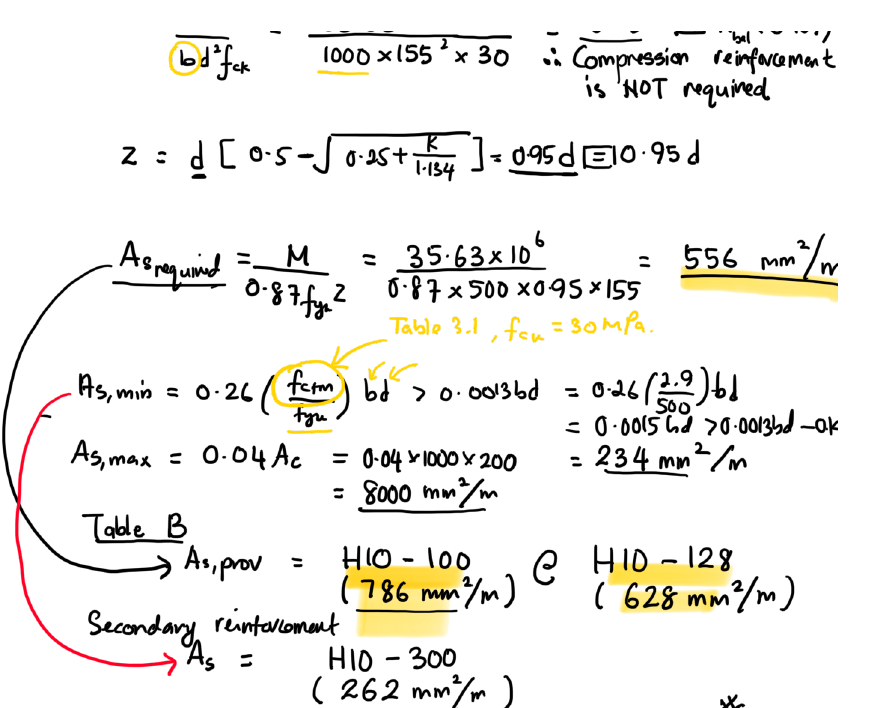 bd²fck 1000 × 155² × 30 ∴ Compression reinforcement
is NOT required
Z = d [ 0.5 - √ 0.25 + K/1.134 ] = 0.95d = 10.95d
As required = M / 0.87fyk Z = 35.63 × 10⁶ / 0.87 × 500 × 0.95 × 155 = 556 mm²/m
Table 3.1, fcu = 30 MPa.
As,min = 0.26 ( fctm / fyk ) bd > 0.0013bd = 0.26 ( 2.9 / 500 ) bd
= 0.0015bd > 0.0013bd - OK
As,max = 0.04 Ac = 0.04 × 1000 × 200 = 234 mm²/m
= 8000 mm²/m
Table B
As,prov = H10 - 100 @ H10 - 128
( 786 mm²/m ) ( 628 mm²/m )
Secondary reinforcement
As = H10 - 300
( 262 mm²/m )